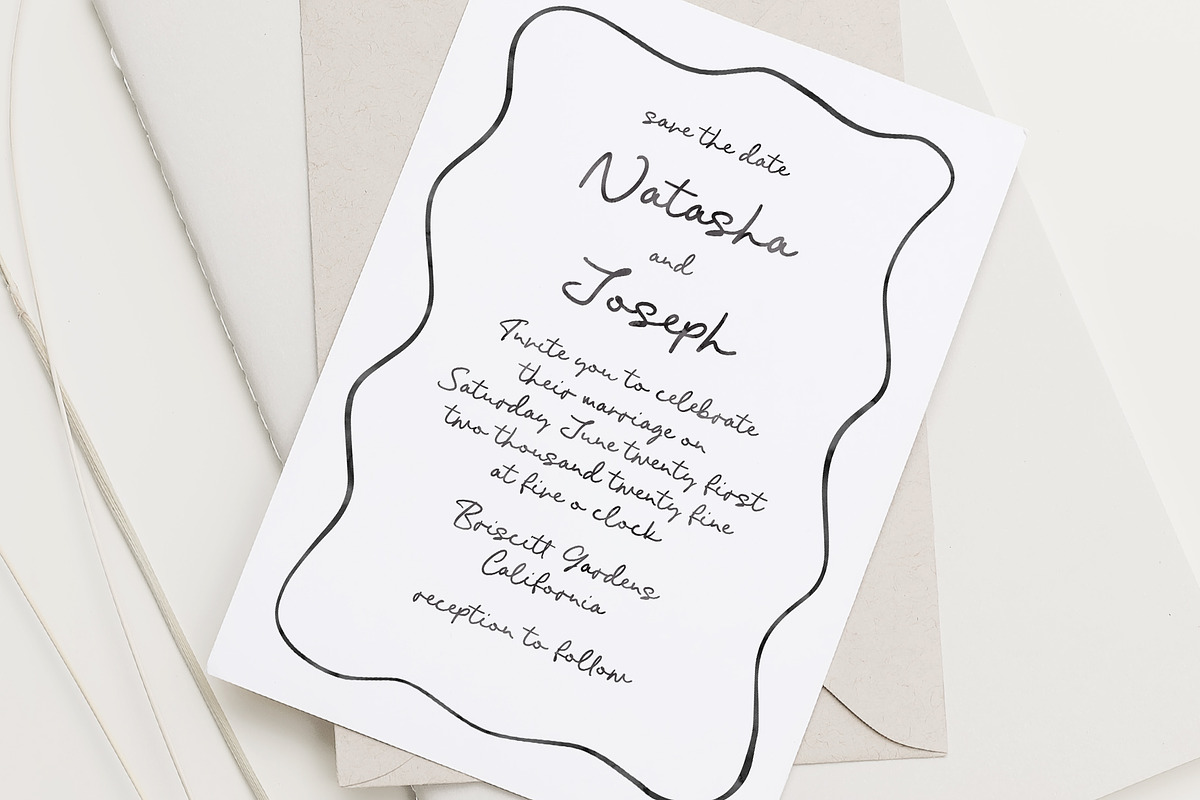 save the date
Natasha
and
Joseph
Invite you to celebrate
their marriage on
Saturday June twenty first
two thousand twenty five
at five o clock
Briscitt Gardens
California
reception to follow